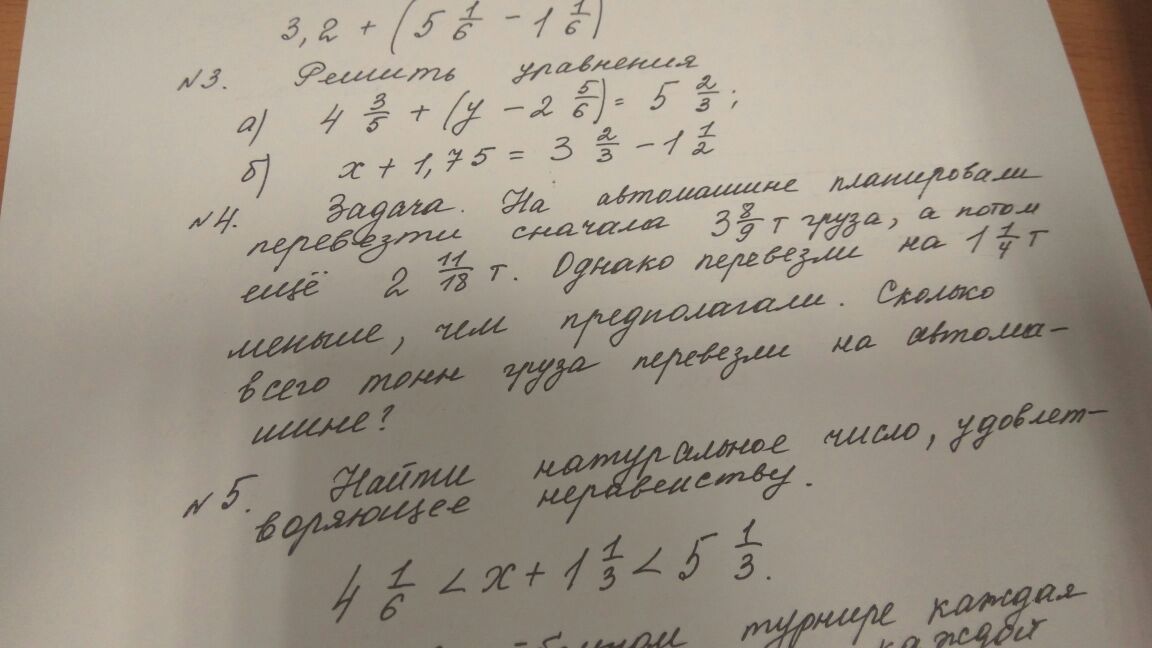 3,2 + (5 1/6 - 1 1/6)
№3. Решить уравнения
а) 4 3/5 + (у - 2 5/6) = 5 2/3;
б) х + 1,75 = 3 2/3 - 1 1/2
№4. Задача. На автомашине планировали
перевезти сначала 3 8/9 т груза, а потом
ещё 2 11/18 т. Однако перевезли на 1 1/4 т
меньше, чем предполагали. Сколько
всего тонн груза перевезли на автома-
шине?
№5. Найти натуральное число, удовлет-
воряющее неравенству.
4 1/6 < х + 1 1/3 < 5 1/3.
турнире каждая
каждой